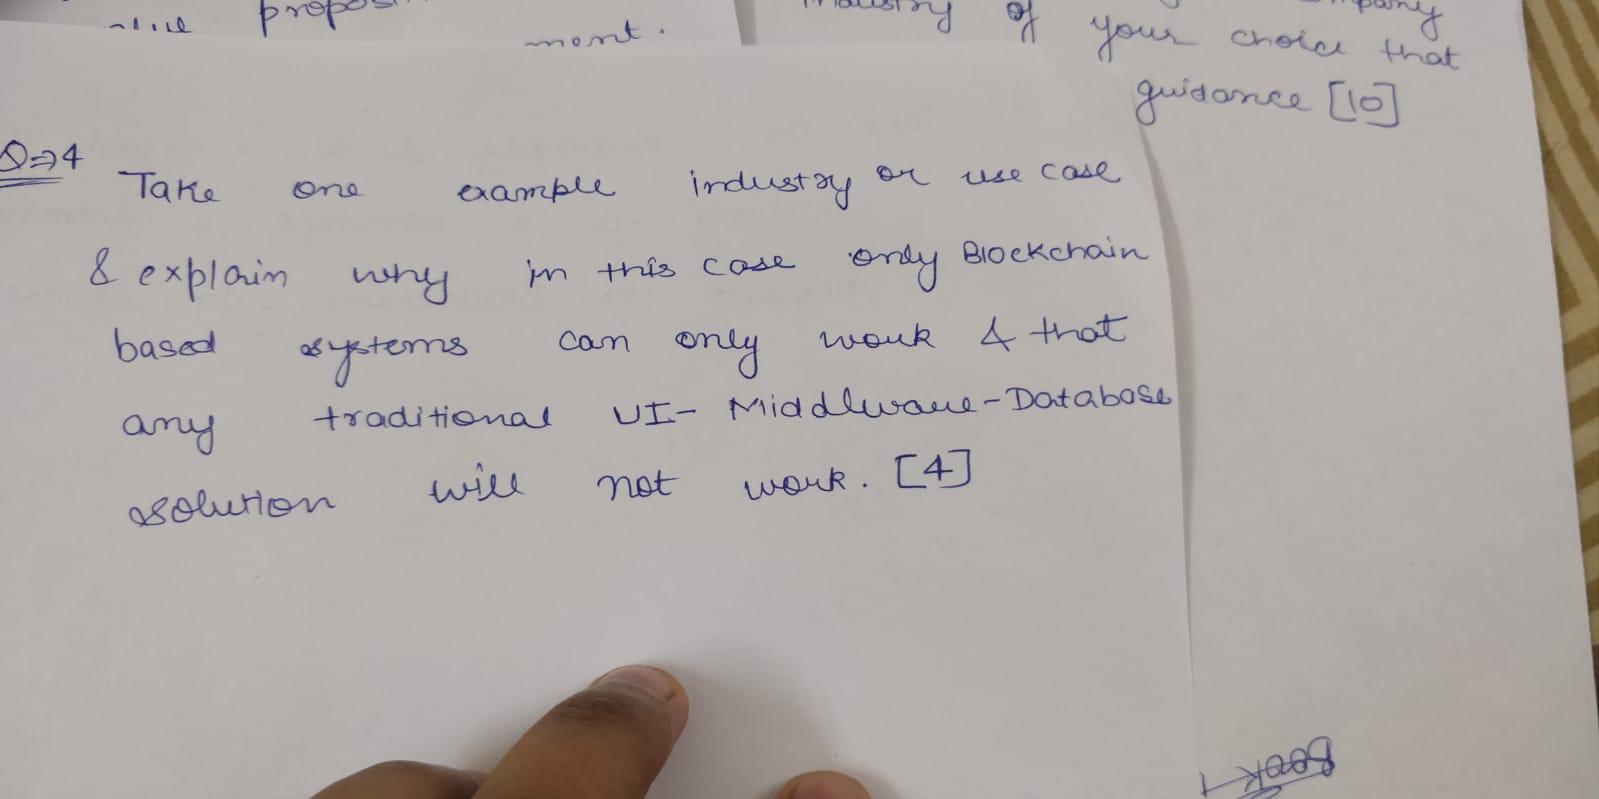 propos
ment.
of your choice that
guidance [10]
Q⇒4
Take one example industry or use case
& explain why in this case only Blockchain
based systems can only work & that
any traditional UI- Middleware-Database
solution will not work. [4]
Book 1